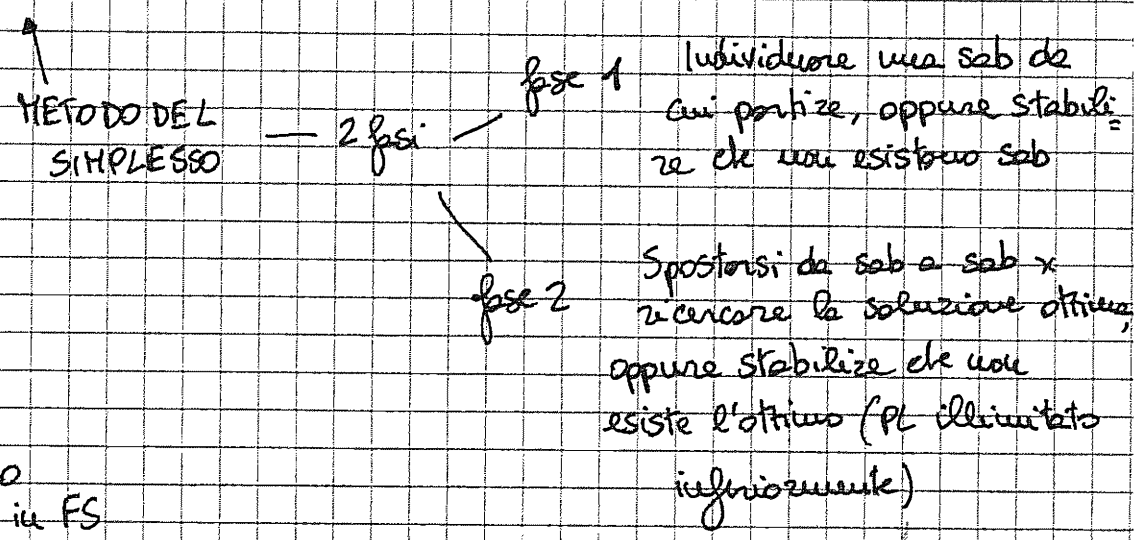 METODO DEL
SIMPLESSO
2 fasi
fase 1
Individuare una sab da
cui partire, oppure stabili=
re che non esistono sab
fase 2
Spostarsi da sab a sab x
ricercare la soluzione ottima,
oppure stabilire che non
esiste l'ottimo (PL illimitato
inferiormente)
o
in FS